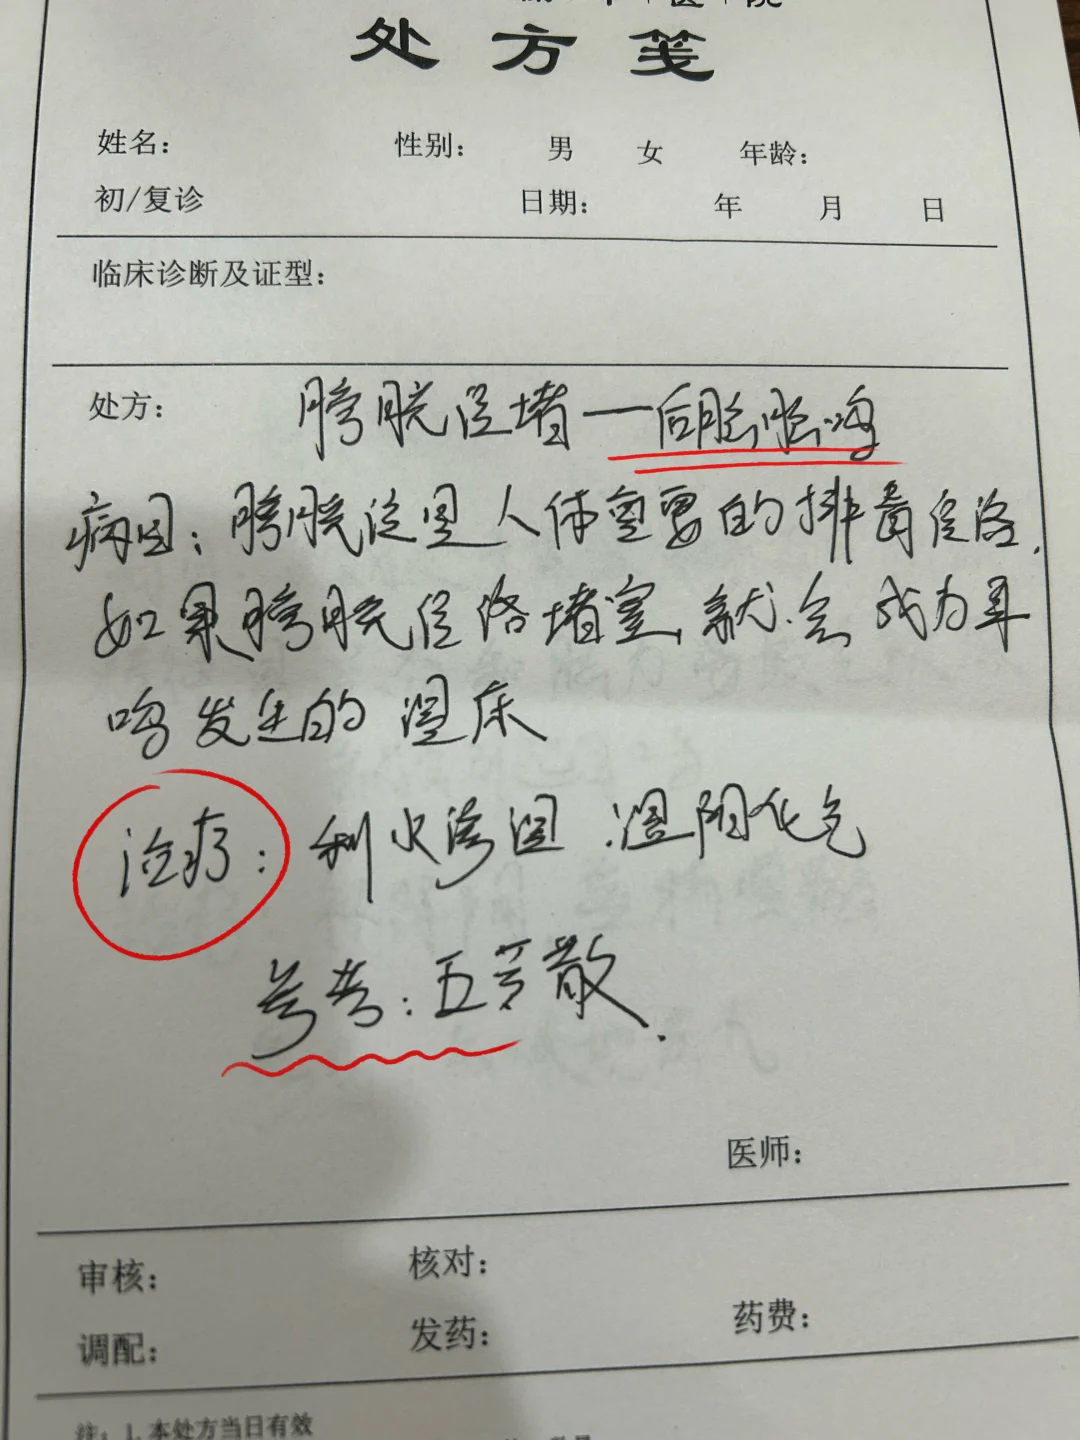 处方笺
姓名： 性别： 男 女 年龄：
初/复诊 日期： 年 月 日
临床诊断及证型：
处方： 膀胱经堵一后脑脑鸣
病因：膀胱经是人体重要的排毒经络，
如果膀胱经络堵塞，就会成为耳
鸣发生的温床
治疗：利水渗湿．温阳化气
参考：五苓散．
医师：
审核： 核对：
调配： 发药： 药费：
注：1.本处方当日有效